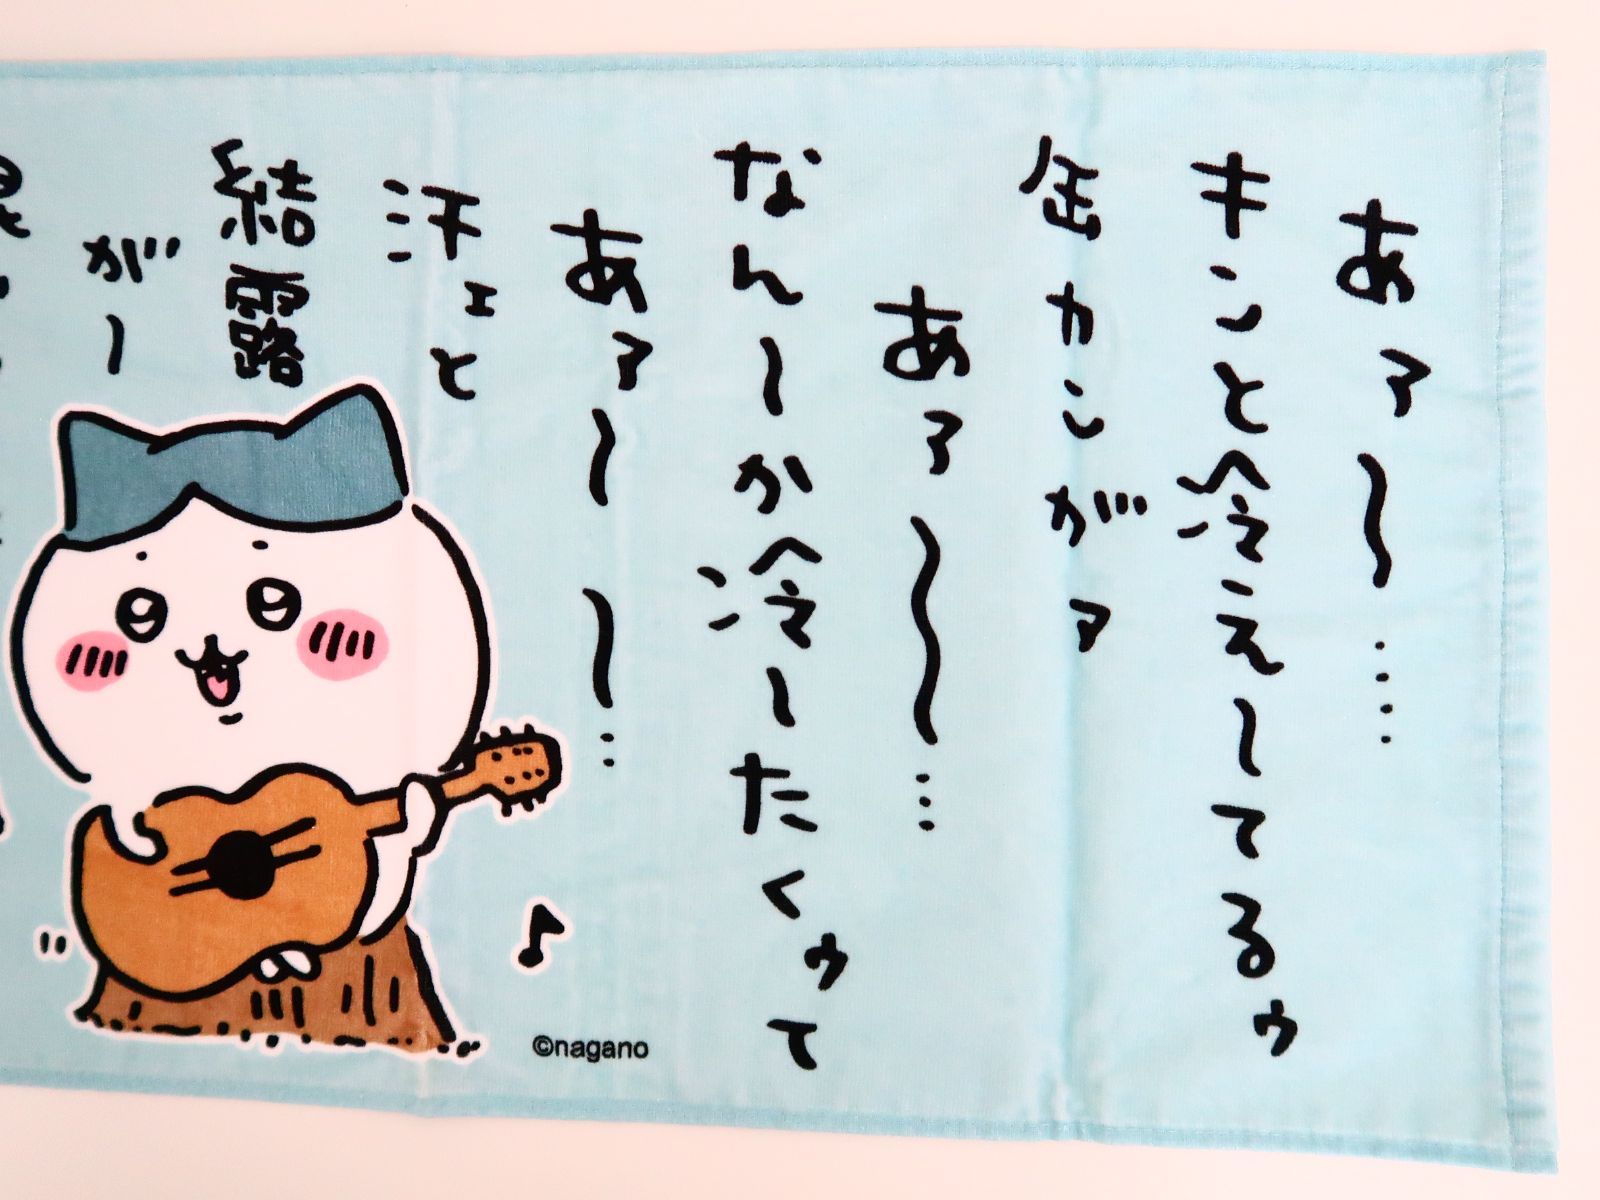 あァ〜‥‥
キンと冷えーてるゥ
缶カンがァ
あァ〜〜…
なんーか冷ーたくゥて
あァ〜〜…
汗ェと
結露
がー
©nagano